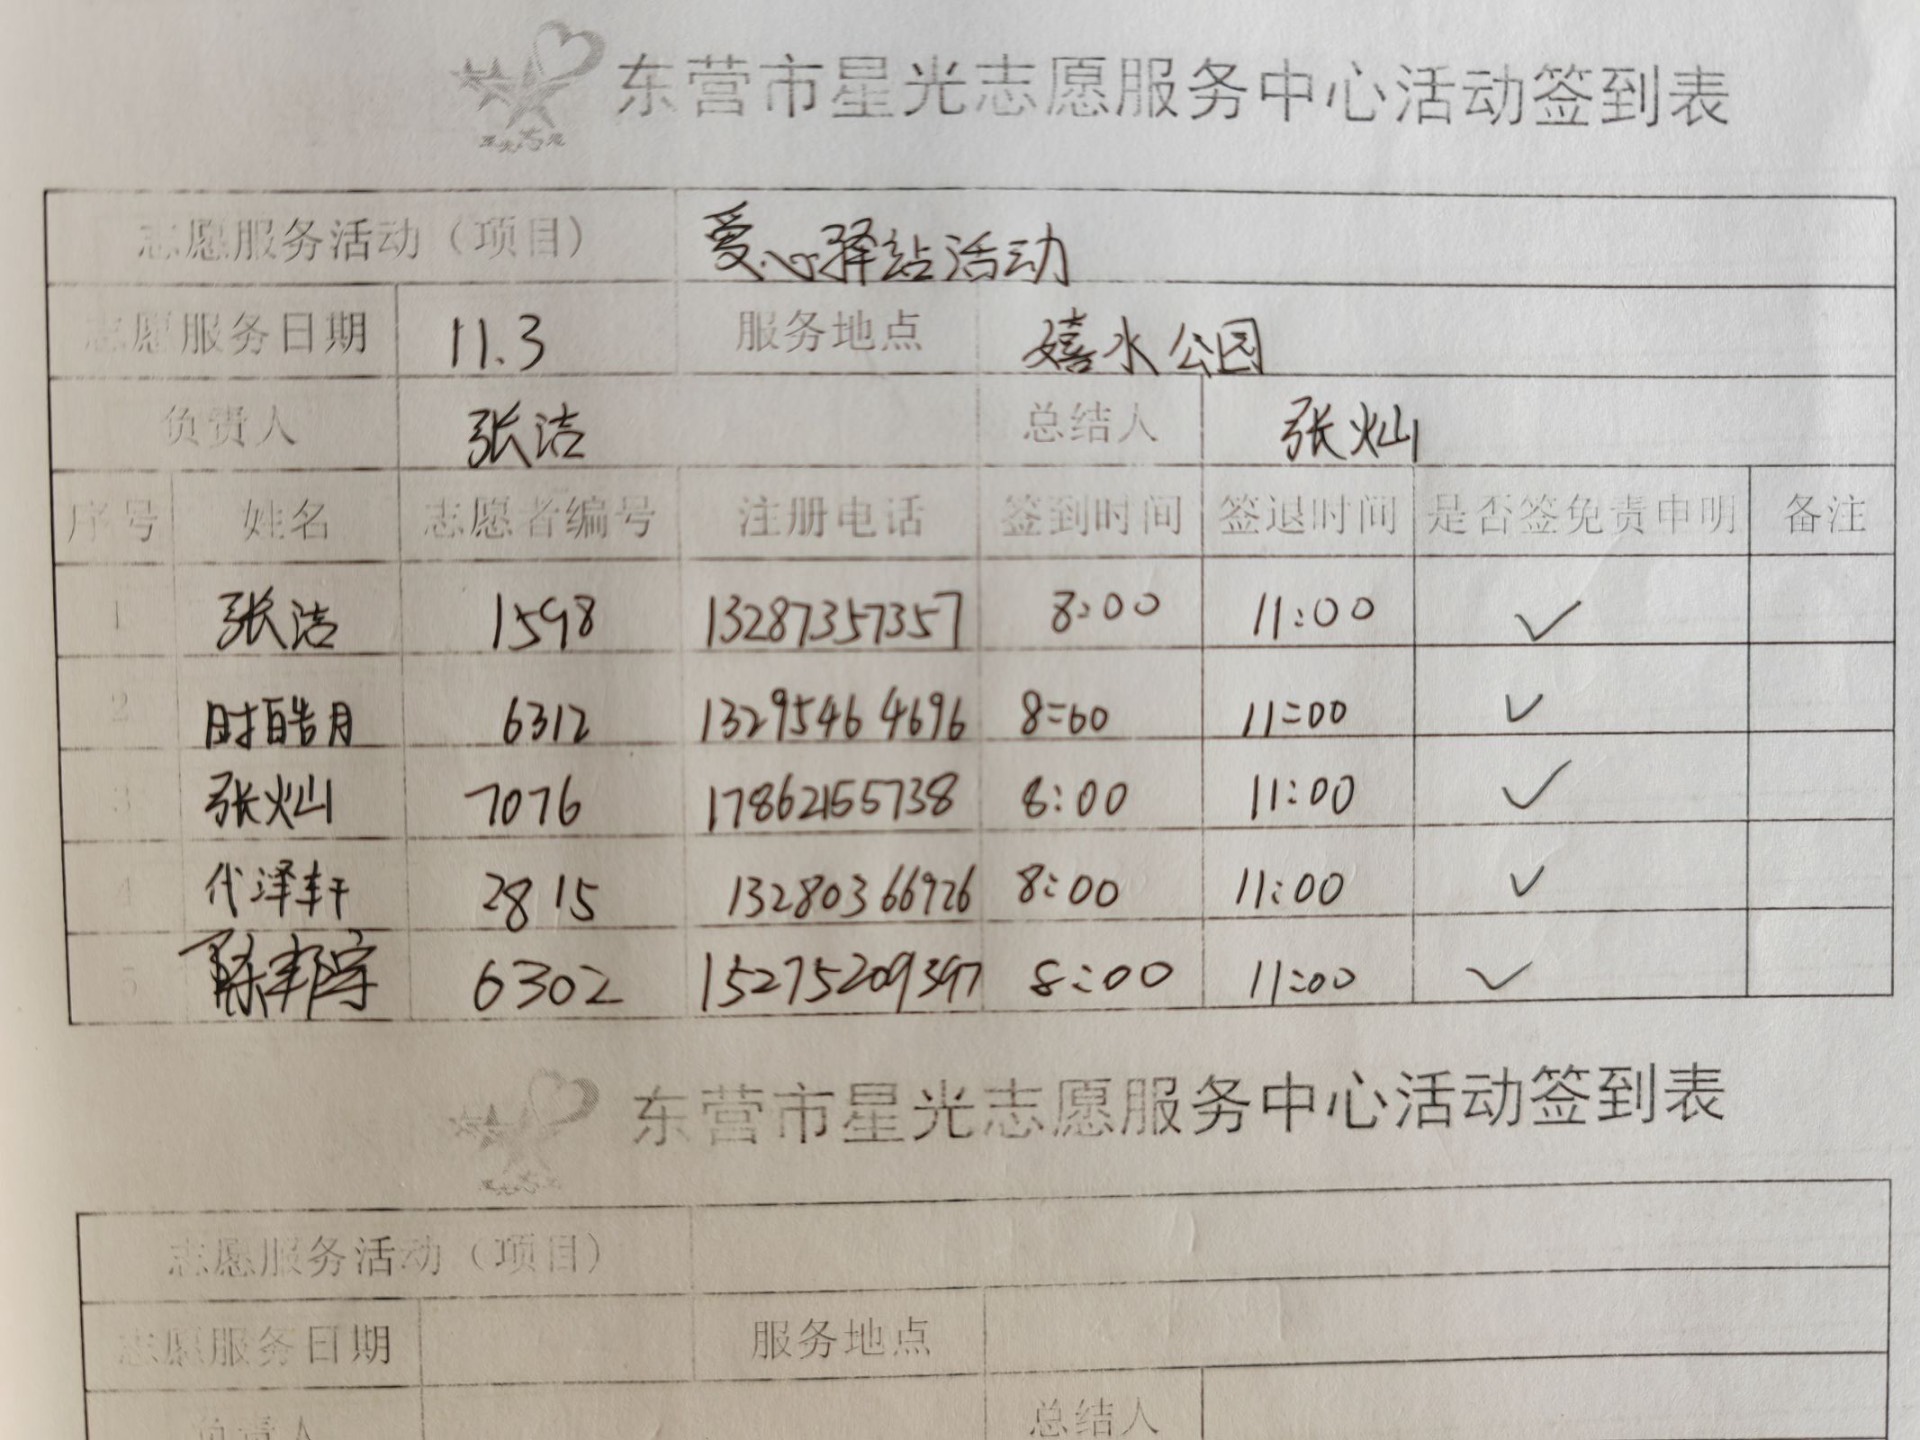 东营市星光志愿服务中心活动签到表
志愿服务活动（项目） 爱心驿站活动
志愿服务日期 11.3 服务地点 嬉水公园
负责人 张洁 总结人 张灿
序号 姓名 志愿者编号 注册电话 签到时间 签退时间 是否签免责申明 备注
1 张洁 1598 13287357357 8:00 11:00 ✓
2 时皓月 6312 13295464696 8:00 11:00 ✓
3 张灿 7076 17862155738 8:00 11:00 ✓
4 代泽轩 2815 13280366926 8:00 11:00 ✓
5 陈邦宇 6302 15275209397 8:00 11:00 ✓
东营市星光志愿服务中心活动签到表
志愿服务活动（项目）
志愿服务日期 服务地点
负责人 总结人